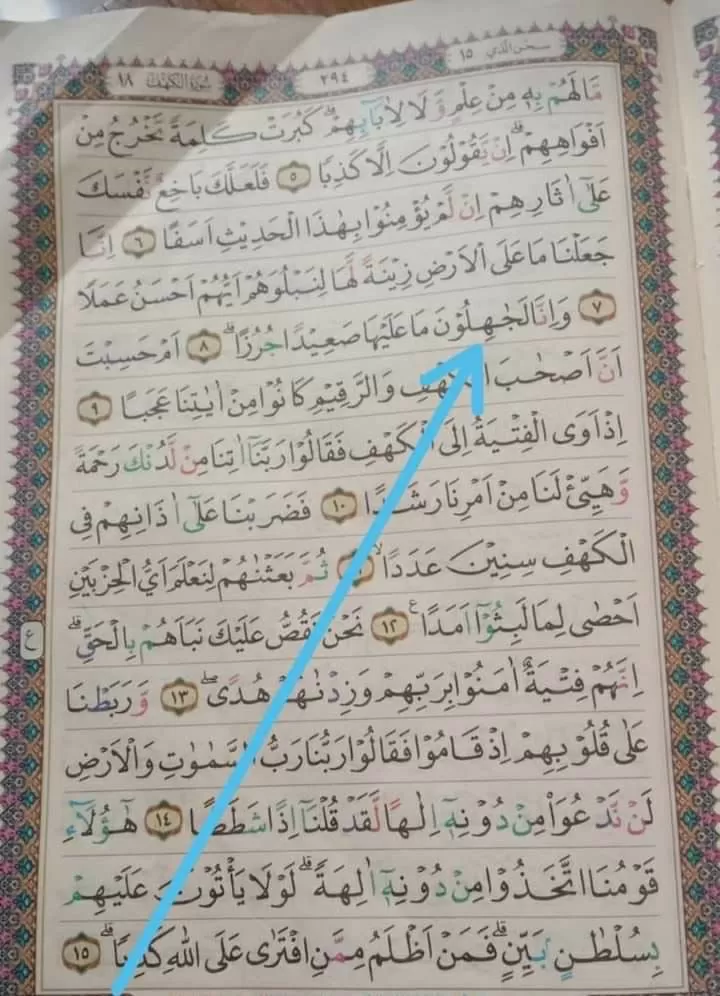 سبحن الذي ١٥
٢٩٤
سورة الكهف ١٨
مَّا لَهُمْ بِهٖ مِنْ عِلْمٍ وَّلَا لِاٰبَاۤىِٕهِمْۗ كَبُرَتْ كَلِمَةً تَخْرُجُ مِنْ
اَفْوَاهِهِمْۗ اِنْ يَّقُوْلُوْنَ اِلَّا كَذِبًا ٥ فَلَعَلَّكَ بَاخِعٌ نَّفْسَكَ
عَلٰٓى اٰثَارِهِمْ اِنْ لَّمْ يُؤْمِنُوْا بِهٰذَا الْحَدِيْثِ اَسَفًا ٦ اِنَّا
جَعَلْنَا مَا عَلَى الْاَرْضِ زِيْنَةً لَّهَا لِنَبْلُوَهُمْ اَيُّهُمْ اَحْسَنُ عَمَلًا
٧ وَاِنَّا لَجٰهِلُوْنَ مَا عَلَيْهَا صَعِيْدًا جُرُزًاۗ ٨ اَمْ حَسِبْتَ
اَنَّ اَصْحٰبَ الْكَهْفِ وَالرَّقِيْمِ كَانُوْا مِنْ اٰيٰتِنَا عَجَبًا ٩
اِذْ اَوَى الْفِتْيَةُ اِلَى الْكَهْفِ فَقَالُوْا رَبَّنَآ اٰتِنَا مِنْ لَّدُنْكَ رَحْمَةً
وَّهَيِّئْ لَنَا مِنْ اَمْرِنَا رَشَدًا ١٠ فَضَرَبْنَا عَلٰٓى اٰذَانِهِمْ فِى
الْكَهْفِ سِنِيْنَ عَدَدًاۙ ثُمَّ بَعَثْنٰهُمْ لِنَعْلَمَ اَيُّ الْحِزْبَيْنِ
اَحْصٰى لِمَا لَبِثُوْٓا اَمَدًا ࣖ ١٢ نَحْنُ نَقُصُّ عَلَيْكَ نَبَاَهُمْ بِالْحَقِّۗ
ع
اِنَّهُمْ فِتْيَةٌ اٰمَنُوْا بِرَبِّهِمْ وَزِدْنٰهُمْ هُدًىۖ ١٣ وَّرَبَطْنَا
عَلٰى قُلُوْبِهِمْ اِذْ قَامُوْا فَقَالُوْا رَبُّنَا رَبُّ السَّمٰوٰتِ وَالْاَرْضِ
لَنْ نَّدْعُوَا۟ مِنْ دُوْنِهٖٓ اِلٰهًا لَّقَدْ قُلْنَآ اِذًا شَطَطًا ١٤ هٰٓؤُلَاۤءِ
قَوْمُنَا اتَّخَذُوْا مِنْ دُوْنِهٖٓ اٰلِهَةًۗ لَوْلَا يَأْتُوْنَ عَلَيْهِمْ
بِسُلْطٰنٍ بَيِّنٍۗ فَمَنْ اَظْلَمُ مِمَّنِ افْتَرٰى عَلَى اللّٰهِ كَذِبًاۗ ١٥